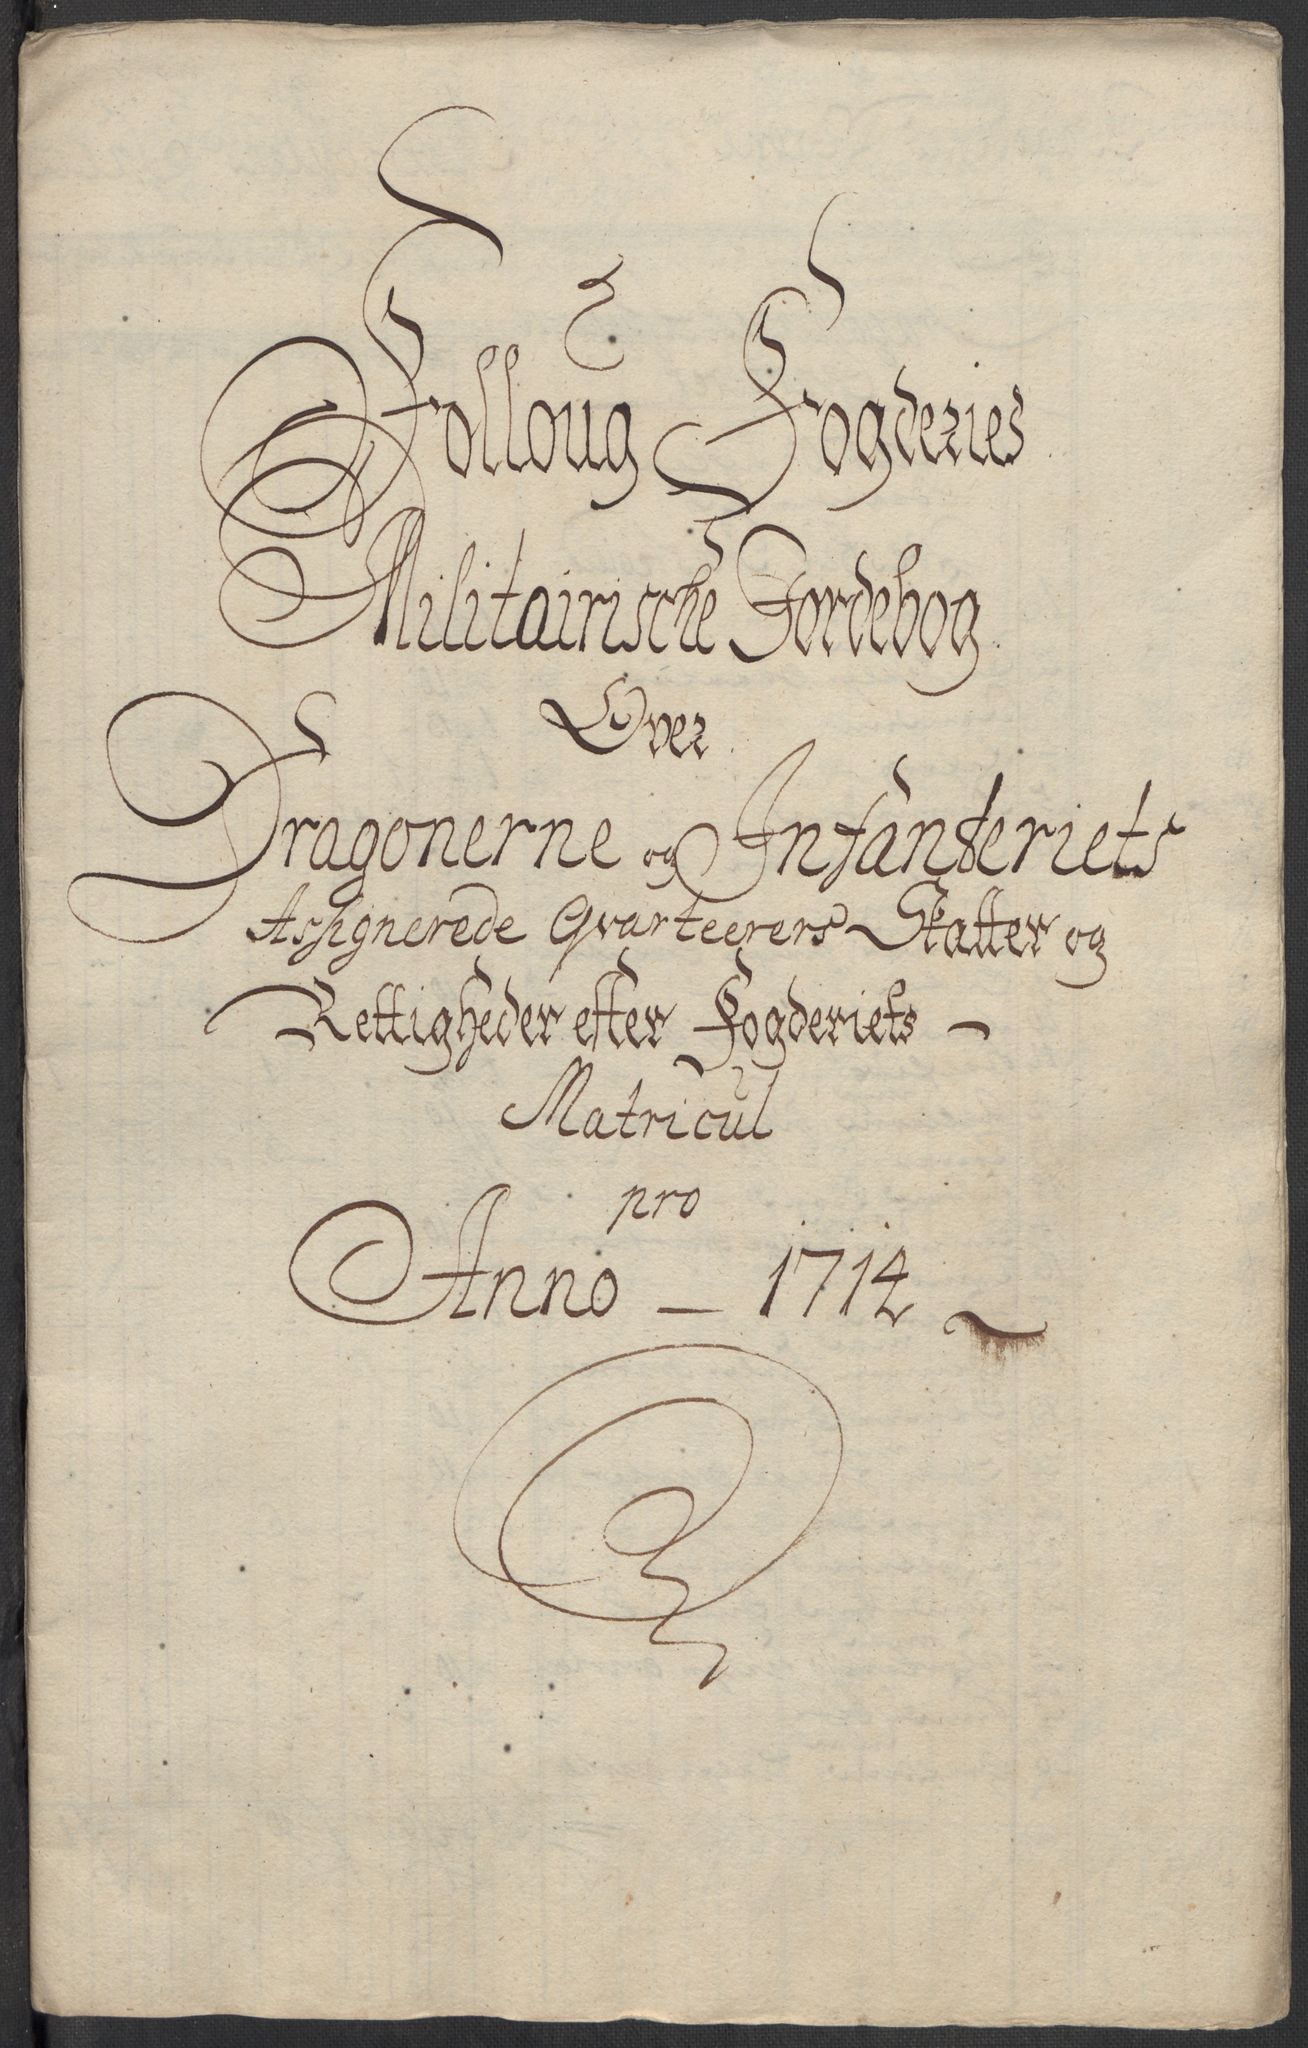 Folloug Fogderies
Militairische Jordebog
Over
Dragonerne og Infanteriets
Assignerede Qvarteerers Skatter og
Rettigheder efter Fogderiets
Matricul
pro
Anno – 1714